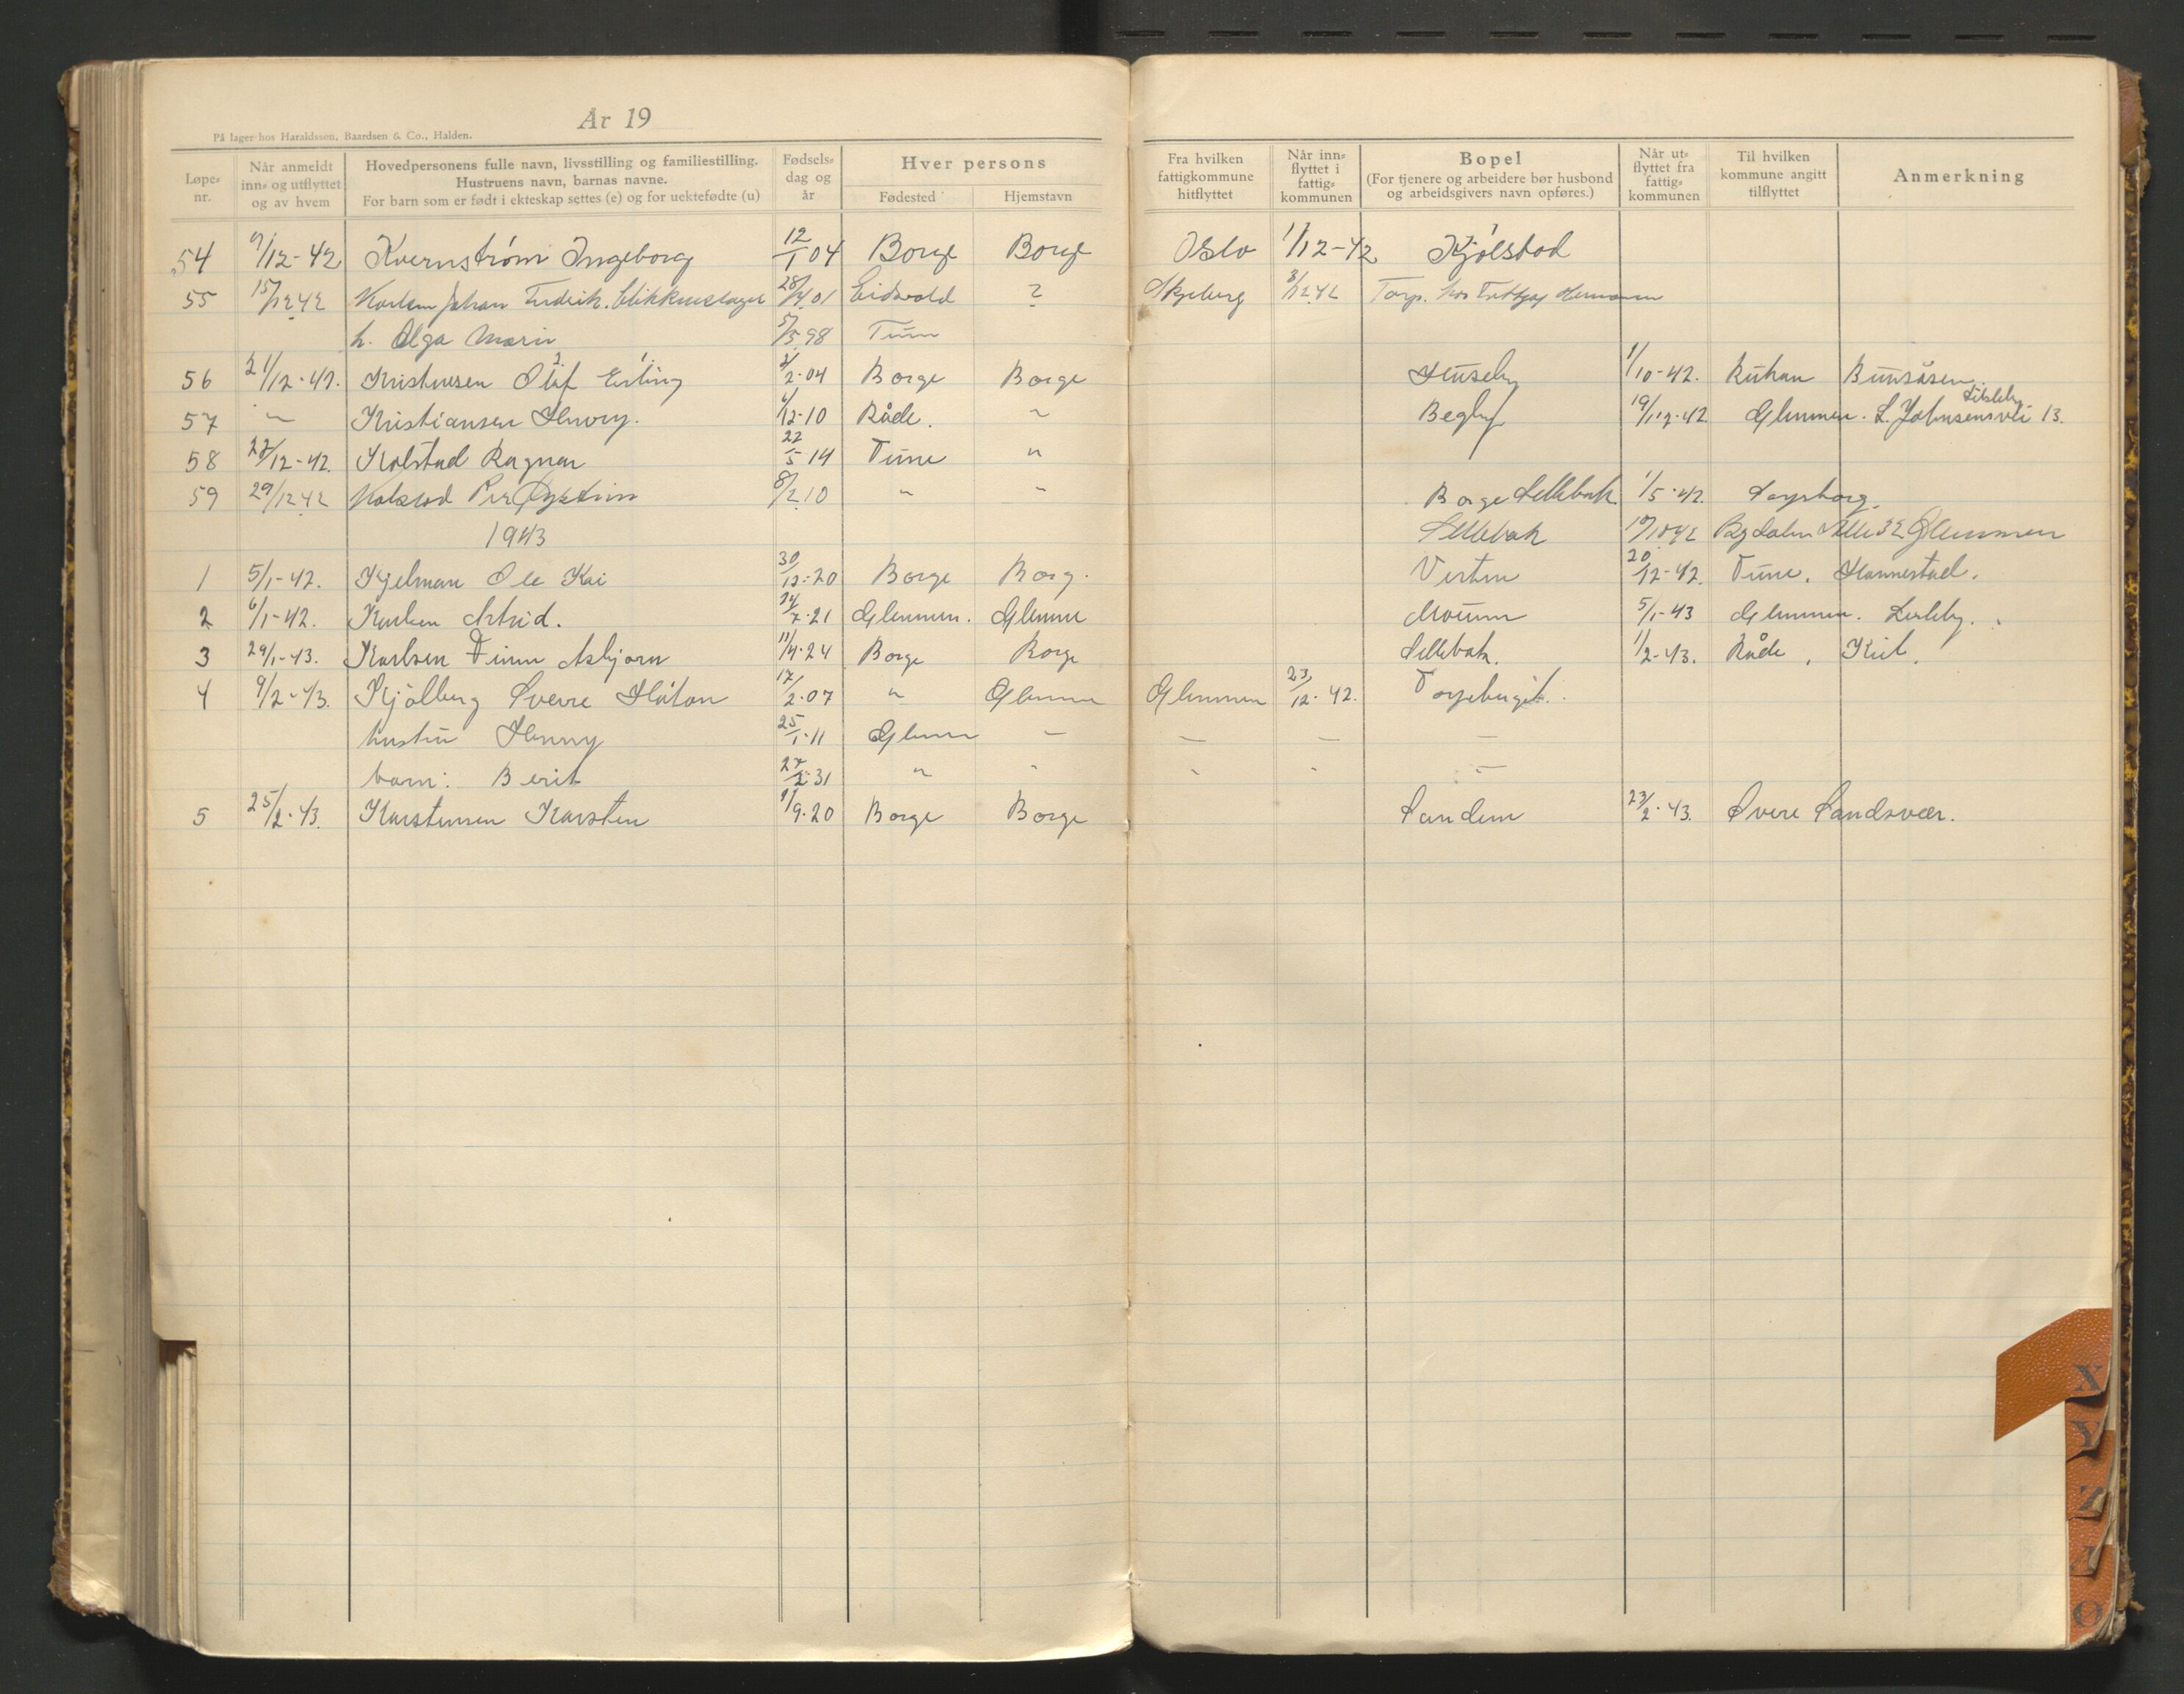 År 19
På lager hos Haraldssøn, Baardsen & Co., Halden.
Løpe-nr. Når anmeldt inn- og utflyttet og av hvem Hovedpersonens fulle navn, livsstilling og familiestilling. Hustruens navn, barnas navne. For barn som er født i ekteskap settes (e) og for uektefødte (u) Fødsels-dag og år Hver persons Fødested Hjemstavn Fra hvilken fattigkommune hitflyttet Når inn-flyttet i fattig-kommunen Bopel (For tjenere og arbeidere bør husbond og arbeidsgivers navn opføres.) Når ut-flyttet fra fattig-kommunen Til hvilken kommune angitt tilflyttet Anmerkning
54 9/12-42 Kvernstrøm Ingeborg 12/1 04 Borge Borge Oslo 1/12-42 Kjølstad
55 15/12 42 Karlsen Johan Fredrik. blikkenslager 28/4 01 Eidsvold ? Skjeberg 3/12 42 Torp. hos
h. Olga Marie 5/5 98 Tune
56 21/12-42. Kristensen Olaf Erling 2/2-04 Borge Borge Huseby 1/10-42.
57 " Kristiansen Henry. 6/12-10 Råde. " Begby 19/12-42 Glemmen. L. Johnsensvei 13. Lisleby
58 28/12-42. Kolstad Ragnar 22/5 14 Tune "
59 29/12 42 Kolstad Per Øystein 8/2 10 " " Borge Sellebak 1/5-42. Sarpsborg.
1943 Sellebak Glemmen
1 5/1-42. Kjelman Ole Kai 30/12-20 Borge Borg. 20/12-42. Tune. Hannestad.
2 6/1-42. Karlsen Astrid. 24/7-21 Glemmen. Glemme Moum 5/1-43 Glemmen. Lisleby.
3 29/1-43. Karlsen Finn Asbjørn 11/4-24 Borge Borge Sellebak. 1/2-43. Råde,
4 9/2-43. Kjølberg Sverre Håkon 17/2-07 " Glemme Glemmen 23/12-42. Torpeberget.
hustru Henny 25/1-11 Glemm " " " "
barn: Berit 27/2-31 " " " " "
5 25/2-43. Karstensen Karsten 9/9-20 Borge Borge Sandem 23/2-43. Øvere Sandsvær.
X
Y
Z
Æ
Ø